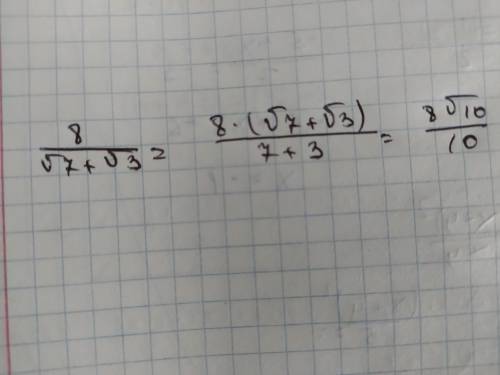 8/(√7 + √3) = 8·(√7 + √3)/(7 + 3) = 8√10/10